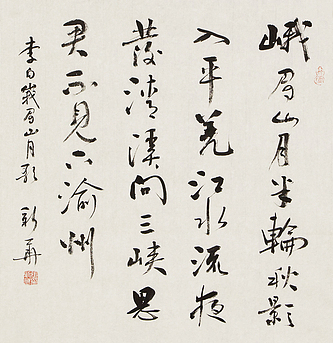 峨眉山月半輪秋影
入平羌江水流夜
發清溪向三峽思
君不見下渝州
李白峩眉山月歌